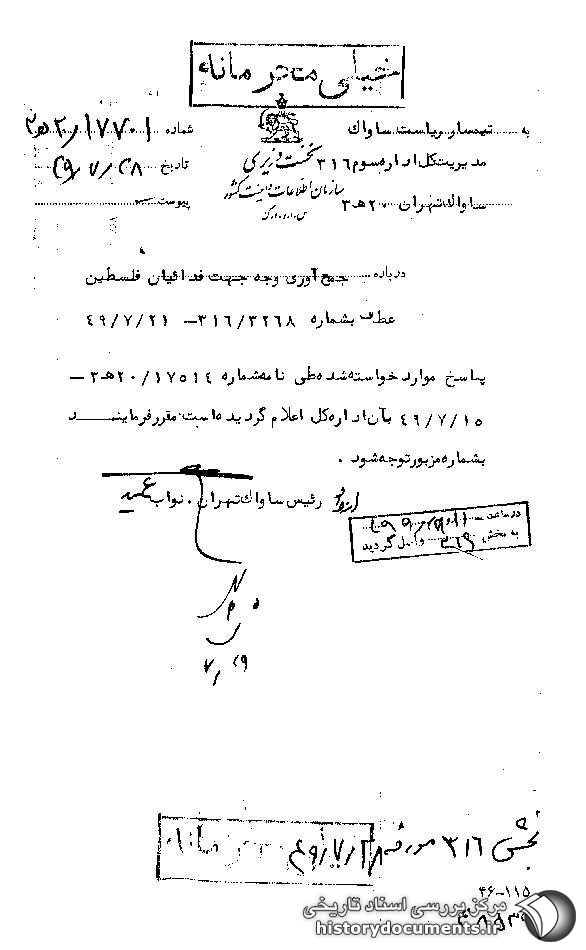 خیلی محرمانه
به تیمسار ریاست ساواک
مدیریت کل اداره سوم ۳۱۶
ساواک تهران ۲۰هـ۳
نخست وزیری
سازمان اطلاعات و امنیت کشور
س.ا.و.ا.ک
شماره ۱۷۷۰۱/۲۰هـ۳
تاریخ ۴۹/۷/۲۸
پیوست
درباره جمع آوری وجه جهت فدائیان فلسطین
عطف بشماره ۳۱۶/۳۲۶۸ – ۴۹/۷/۲۱
پاسخ موارد خواسته شده طی نامه شماره ۲۰/۱۷۵۱۴هـ۳ –
۴۹/۷/۱۵ بآن اداره کل اعلام گردیده است مقرر فرمایند
بشماره مزبور توجه شود .
رئیس ساواک تهران . نواب
در ساعت
به بخش ۳۱۶ واصل گردید
۷/۲۹
بخش ۳۱۶ مورخه
خیلی محرمانه
۴۶-۱۱۵
مرکز بررسی اسناد تاریخی
historydocuments.ir